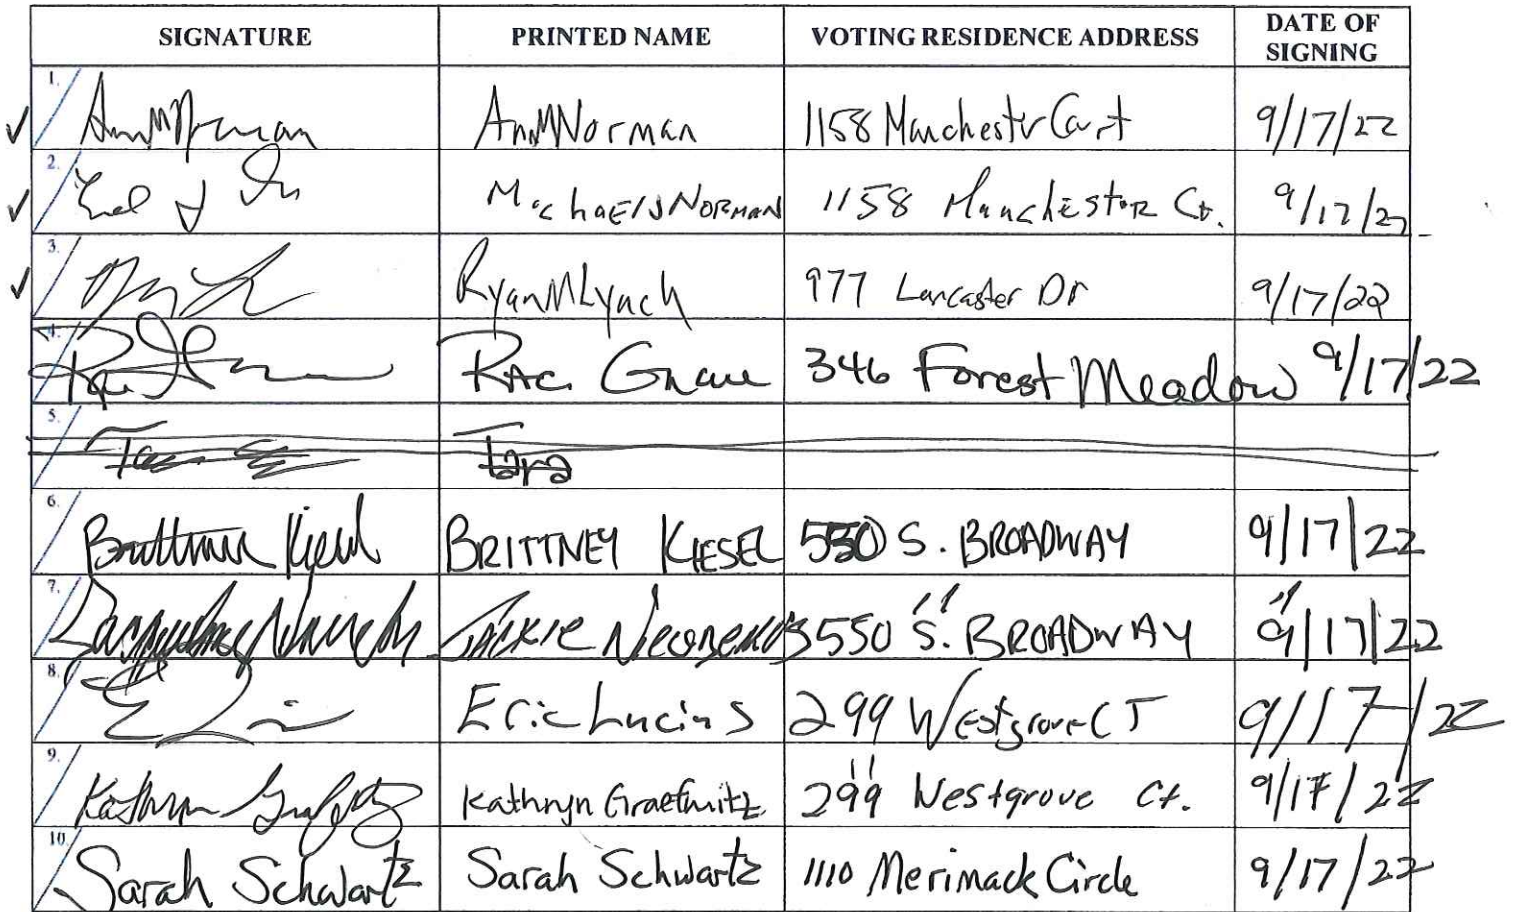 SIGNATURE PRINTED NAME VOTING RESIDENCE ADDRESS DATE OF SIGNING
1. Ann M Norman AnnMNorman 1158 Manchester Court 9/17/22
2. MichaElJNORMAN 1158 Manchester Ct. 9/17/22
3. RyanMLynch 977 Lancaster Dr 9/17/22
4. 346 Forest Meadow 9/17/22
5. Tara Tara
6. Brittney Kiesel BRITTNEY KIESEL 550 S. BROADWAY 9/17/22
7. JACKIE 550 S. BROADWAY 9/17/22
8. Eric Lucius 299 Westgrove CT 9/17/22
9. Kathryn Kathryn Graefnitz 299 Westgrove Ct. 9/17/22
10. Sarah Schwartz Sarah Schwartz 1110 Merimack Circle 9/17/22